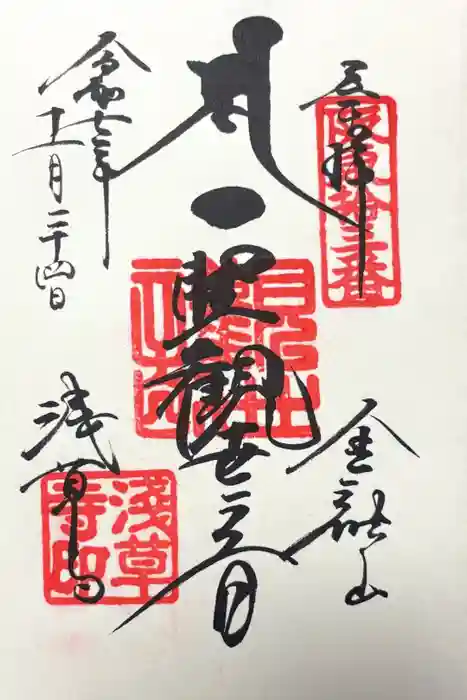 奉拝
坂東拾三番
聖観世音
金龍山
令和七年
十一月二十四日
浅草寺
淺草
寺印